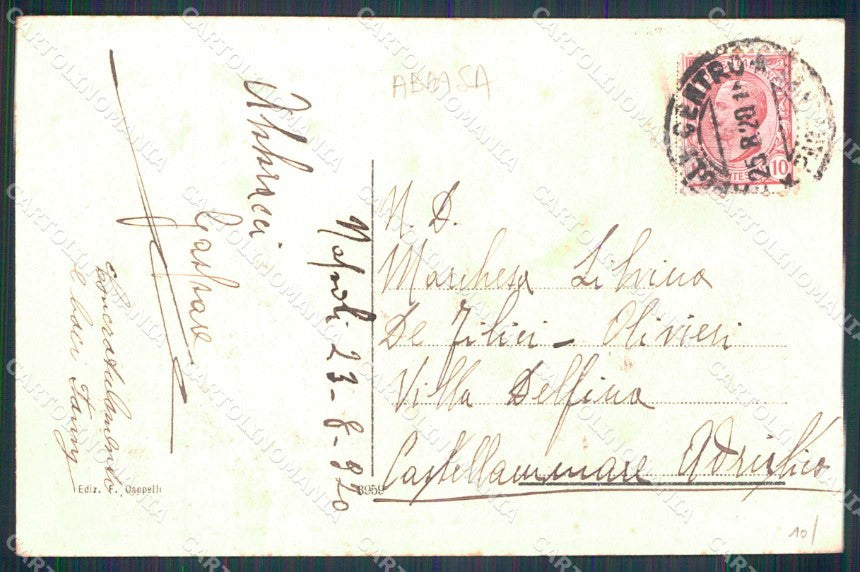 ABBASA
Abbracci
Gaspare
Napoli 23-8-920
e baci Fanny
N. D.
Marchesa Silvina
De Filici - Olivieri
Villa Delfina
Castellammare Adriatico
CENTRO
25.8.20
10
Ediz. F. Cappelli
3959
10/
CARTOLINOMANIA